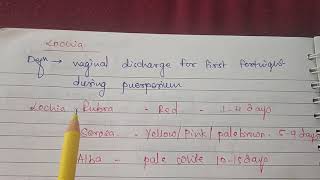 Lochia
Defn → vaginal discharge for first fortnight
during puerperium
Lochia Rubra - Red - 1-4 days
Serosa - Yellow/Pink/pale brown - 5-9 days
Alba - pale white 10-15 days